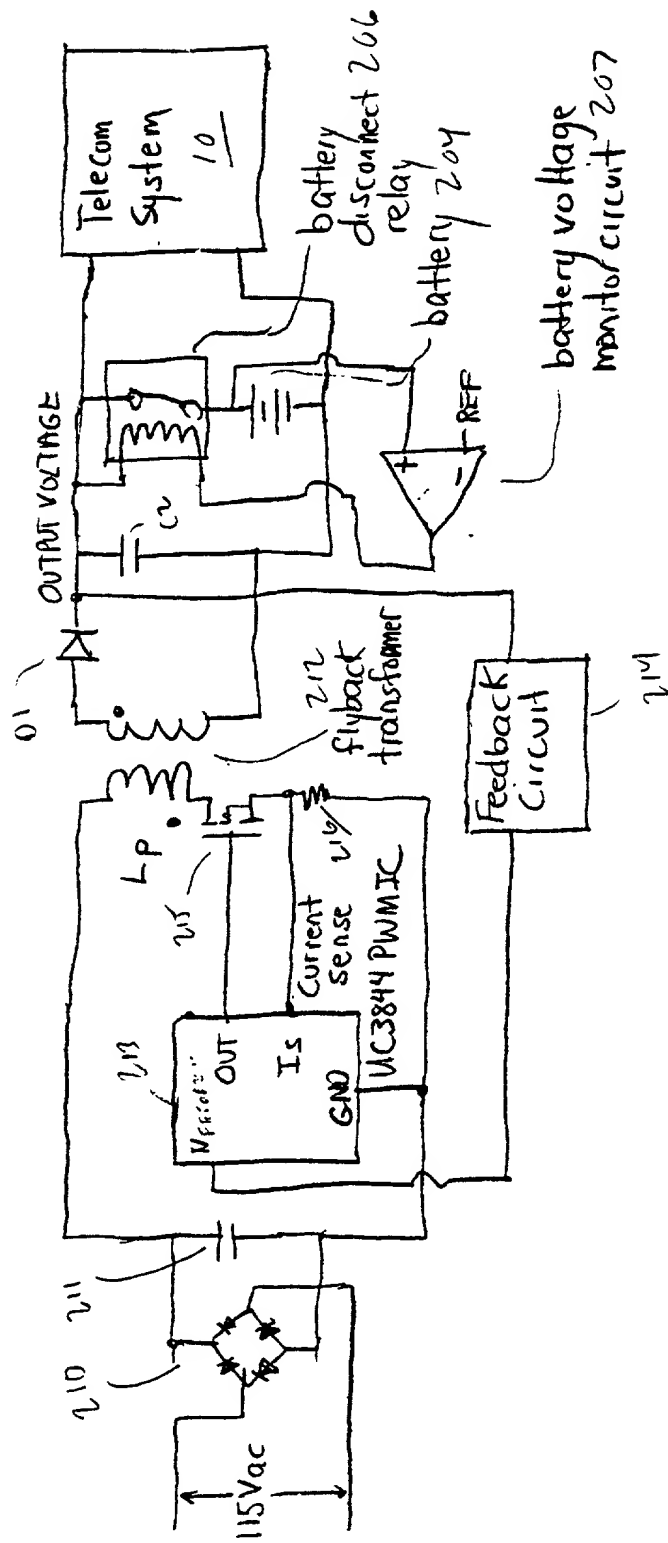 115Vac
210
211
213
OUT
Is
GND
Current
sense
UC3844 PWM IC
215
216
Lp
212
flyback
transformer
D1
OUTPUT VOLTAGE
C2
Feedback
Circuit
214
Telecom
System
10
battery
disconnect 206
relay
battery 204
+
-
REF
battery voltage
monitor circuit 207